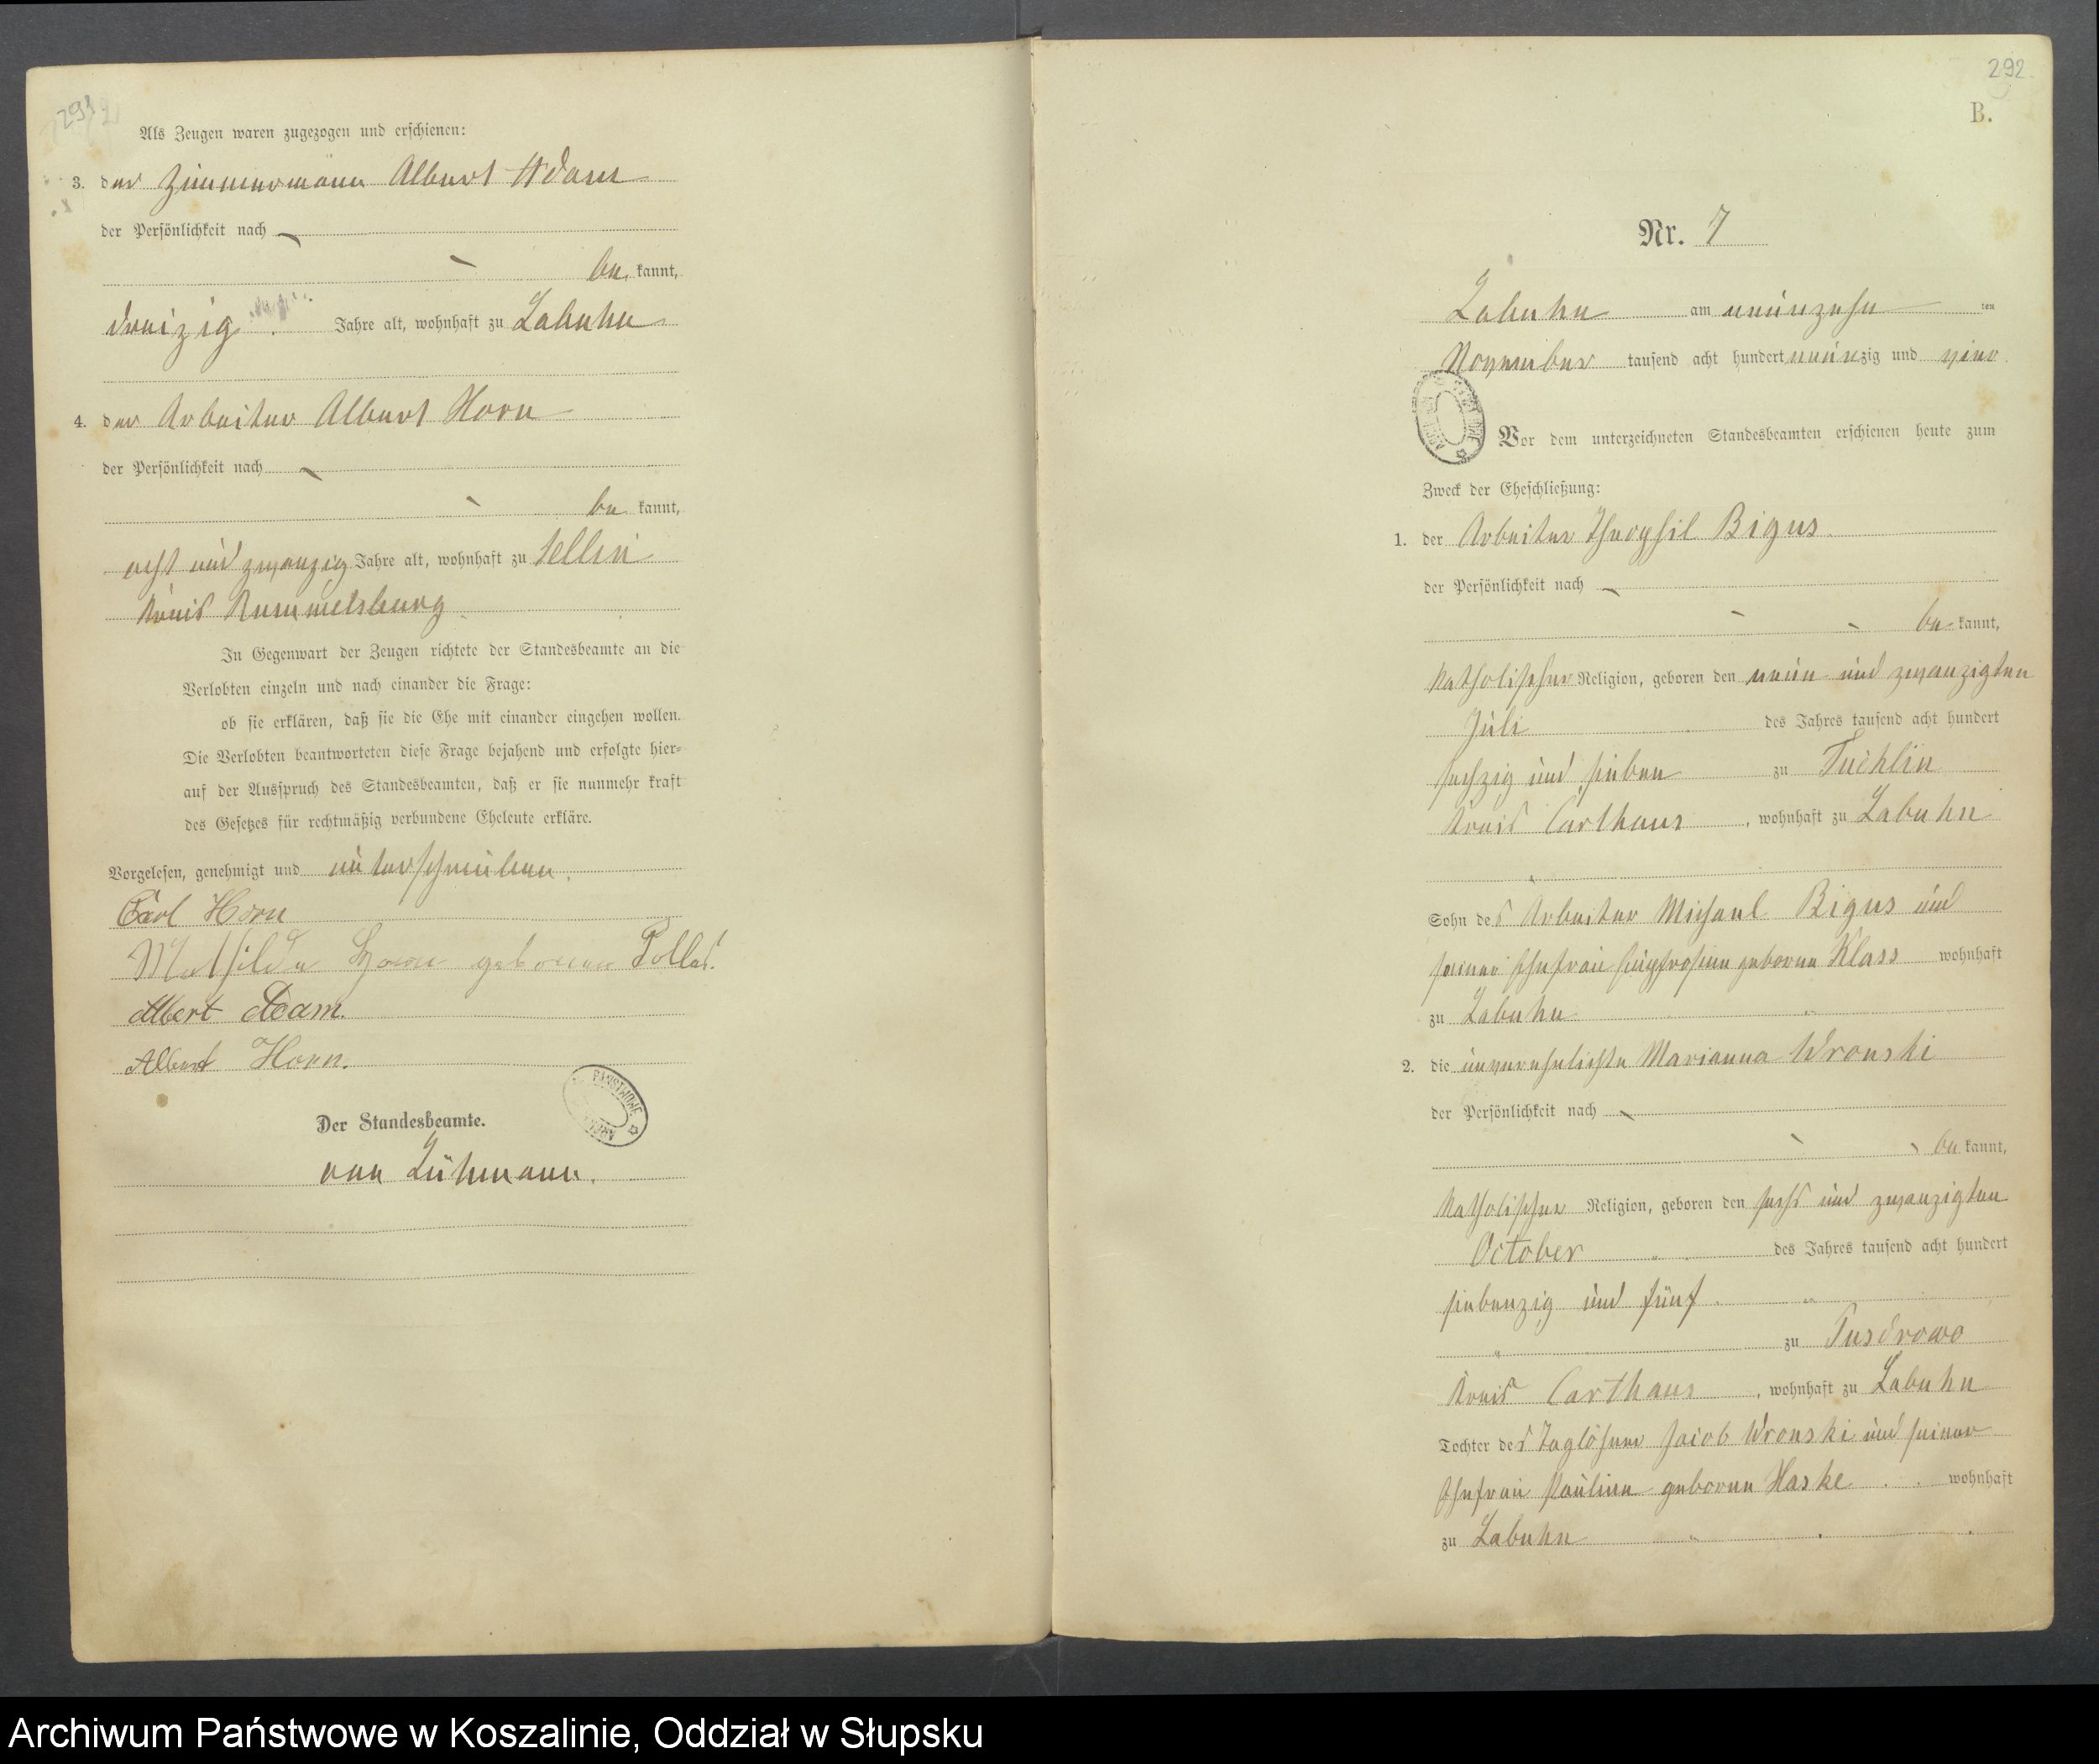 Als Zeugen waren zugezogen und erschienen:
3. der Zimmermann Albert Adam
der Persönlichkeit nach
bekannt,
dreizig Jahre alt, wohnhaft zu Labuhn
4. der Arbeiter Albert Horn
der Persönlichkeit nach
bekannt,
acht und zwanzig Jahre alt, wohnhaft zu Sellin
Kreis Rummelsburg
In Gegenwart der Zeugen richtete der Standesbeamte an die
Verlobten einzeln und nach einander die Frage:
ob sie erklären, daß sie die Ehe mit einander eingehen wollen.
Die Verlobten beantworteten diese Frage bejahend und erfolgte hier-
auf der Ausspruch des Standesbeamten, daß er sie nunmehr kraft
des Gesetzes für rechtmäßig verbundene Eheleute erkläre.
Vorgelesen, genehmigt und unterschrieben.
Carl Horn
Mathilde Horn geborene
Albert Adam.
Albert Horn.
Der Standesbeamte.
von Lühmann.
292
B.
Nr. 7
Labuhn am neunzehnten
November tausend acht hundert neunzig und vier
Vor dem unterzeichneten Standesbeamten erschienen heute zum
Zweck der Eheschließung:
1. der Arbeiter Theophil Bigus
der Persönlichkeit nach
bekannt,
katholischer Religion, geboren den neun und zwanzigten
Juli des Jahres tausend acht hundert
sechzig und sieben zu Tuchlin
Kreis Carthaus, wohnhaft zu Labuhn
Sohn des Arbeiter Michael Bigus und
seiner Ehefrau geborene Klass wohnhaft
zu Labuhn
2. die unverehelichte Marianna Wronski
der Persönlichkeit nach
bekannt,
katholischer Religion, geboren den sechs und zwanzigten
October des Jahres tausend acht hundert
siebenzig und fünf
zu Pusdrowo
Kreis Carthaus, wohnhaft zu Labuhn
Tochter des Taglöhner Jacob Wronski und seiner
Ehefrau Pauline geborene Haske wohnhaft
zu Labuhn
Archiwum Państwowe w Koszalinie, Oddział w Słupsku